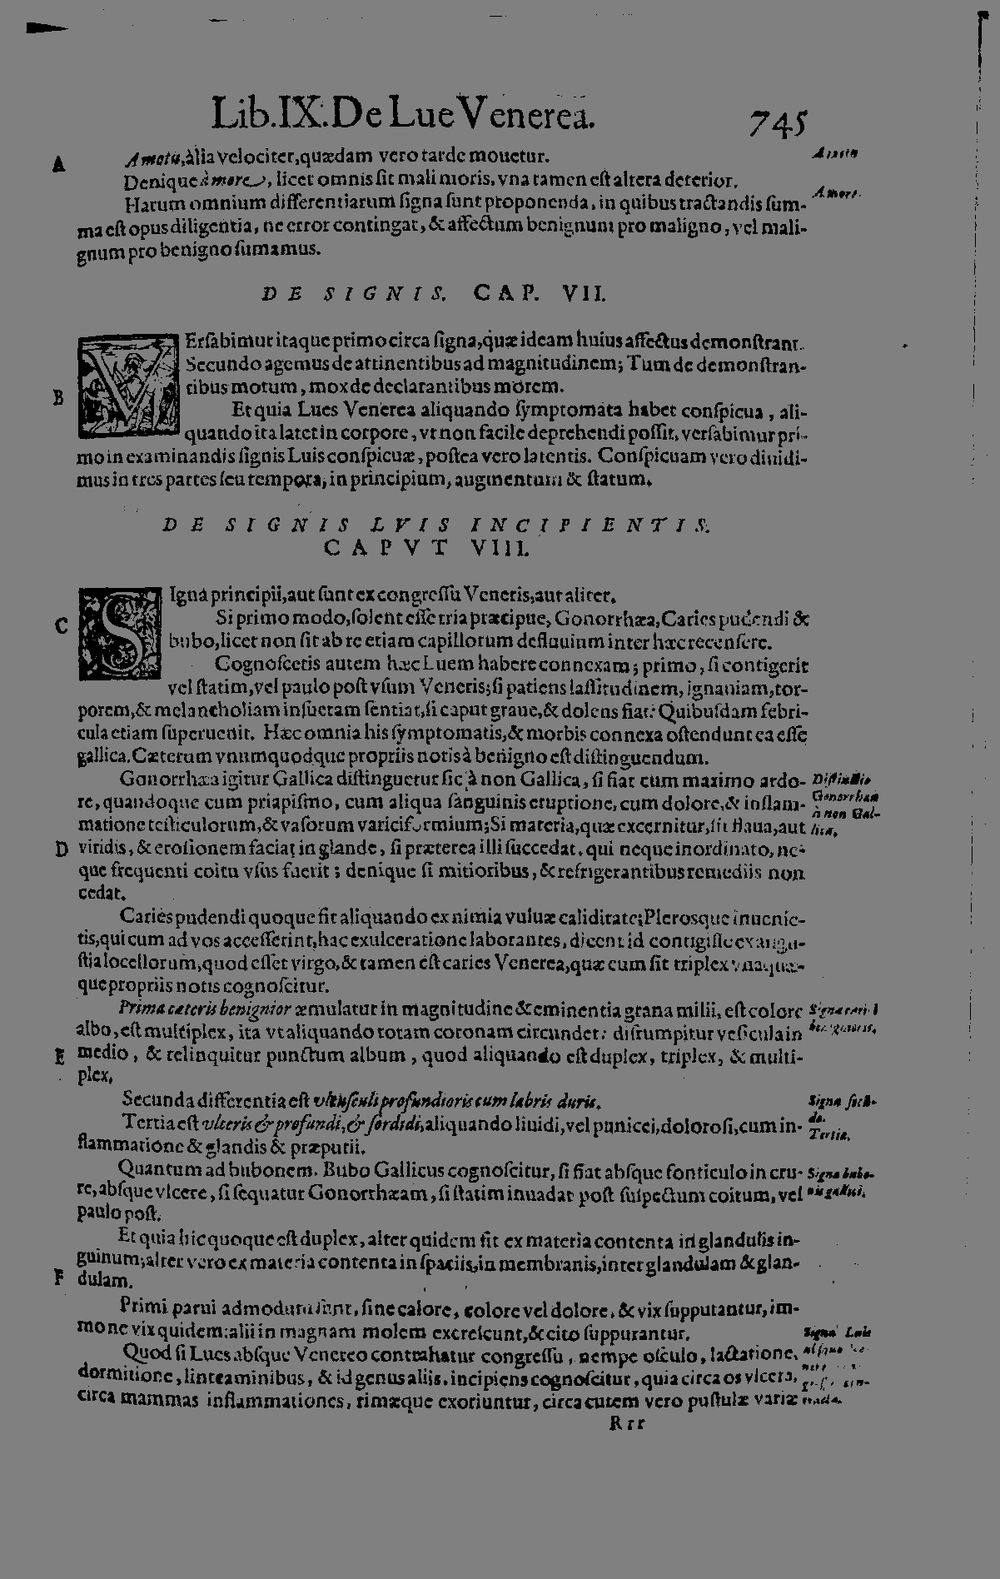 Lib.IX. De Lue Venerea. 745
A A motu, alia velociter, quædam vero tarde mouetur. A motu
Denique à more, licet omnis sit mali moris, vna tamen est altera deterior.
Harum omnium differentiarum signa sunt proponenda, in quibus tractandis sum- A more.
ma est opus diligentia, ne error contingat, & affectum benignum pro maligno, vel mali-
gnum pro benigno sumamus.
DE SIGNIS. CAP. VII.
VErsabimur itaque primo circa signa, quæ ideam huius affectus demonstrant.
Secundo agemus de attinentibus ad magnitudinem; Tum de demonstran-
B tibus motum, mox de declarantibus morem.
Et quia Lues Venerea aliquando symptomata habet conspicua, ali-
quando ita latet in corpore, vt non facile deprehendi possit, versabimur pri-
mo in examinandis signis Luis conspicuæ, postea vero latentis. Conspicuam vero diuidi-
mus in tres partes seu tempora, in principium, augmentum & statum.
DE SIGNIS LVIS INCIPIENTIS.
CAPVT VIII.
SIgna principii, aut sunt ex congressu Veneris, aut aliter.
C Si primo modo, solent esse tria præcipue, Gonorrhæa, Caries pudendi &
bubo, licet non sit ab re etiam capillorum defluuium inter hæc recensere.
Cognoscetis autem hæc Luem habere connexam; primo, si contigerit
vel statim, vel paulo post vsum Veneris; si patiens lassitudinem, ignauiam, tor-
porem, & melancholiam insuetam sentiat, si caput graue, & dolens fiat: Quibusdam febri-
cula etiam superuenit. Hæc omnia his symptomatis, & morbis connexa ostendunt ea esse
gallica. Cæterum vnumquodque propriis notis à benigno est distinguendum.
Gonorrhæa igitur Gallica distinguetur sic à non Gallica, si fiat cum maximo ardo- Distinctio
re, quandoque cum priapismo, cum aliqua sanguinis eruptione, cum dolore, & inflam- Gonorrhææ
matione testiculorum, & vasorum variciformium; Si materia, quæ excernitur, sit flaua, aut à non Gal-
lica.
D viridis, & erosionem faciat in glande, si præterea illi succedat, qui neque inordinato, ne-
que frequenti coitu vsus fuerit; denique si mitioribus, & refrigerantibus remediis non
cedat.
Caries pudendi quoque fit aliquando ex nimia vuluæ caliditate; Plerosque inuenie-
tis, qui cum ad vos accesserint, hac exulceratione laborantes, dicent id contigisse ex angu-
stia locellorum, quod esset virgo, & tamen est caries Venerea, quæ cum sit triplex vnaquæ-
que propriis notis cognoscitur.
Prima cæteris benignior æmulatur in magnitudine & eminentia grana milii, est colore
albo, est multiplex, ita vt aliquando totam coronam circundet: disrumpitur vesicula in
E medio, & relinquitur punctum album, quod aliquando est duplex, triplex, & multi-
plex.
Secunda differentia est vlcusculi profundioris cum labris duris. Signa secū-
dæ.
Tertia est vlceris & profundi, & sordidi, aliquando liuidi, vel punicei, dolorosi, cum in- Tertia.
flammatione & glandis & præputii.
Quantum ad bubonem. Bubo Gallicus cognoscitur, si fiat absque fonticulo in cru- Signa bubo-
re, absque vlcere, si sequatur Gonorrhæam, si statim inuadat post suspectum coitum, vel nis gallici.
paulo post.
Et quia hic quoque est duplex, alter quidem fit ex materia contenta in glandulis in-
guinum; alter vero ex materia contenta in spatiis, in membranis, inter glandulam & glan-
F dulam.
Primi parui admodum sunt, sine calore, colore vel dolore, & vix suppurantur, im-
mo ne vix quidem: alii in magnam molem excrescunt, & cito suppurantur. Signa Luis
Quod si Lues absque Venereo contrahatur congressu, nempe osculo, lactatione,
dormitione, linteaminibus, & id genus aliis, incipiens cognoscitur, quia circa os vlcera,
circa mammas inflammationes, rimæque exoriuntur, circa cutem vero pustulæ variæ
Rrr